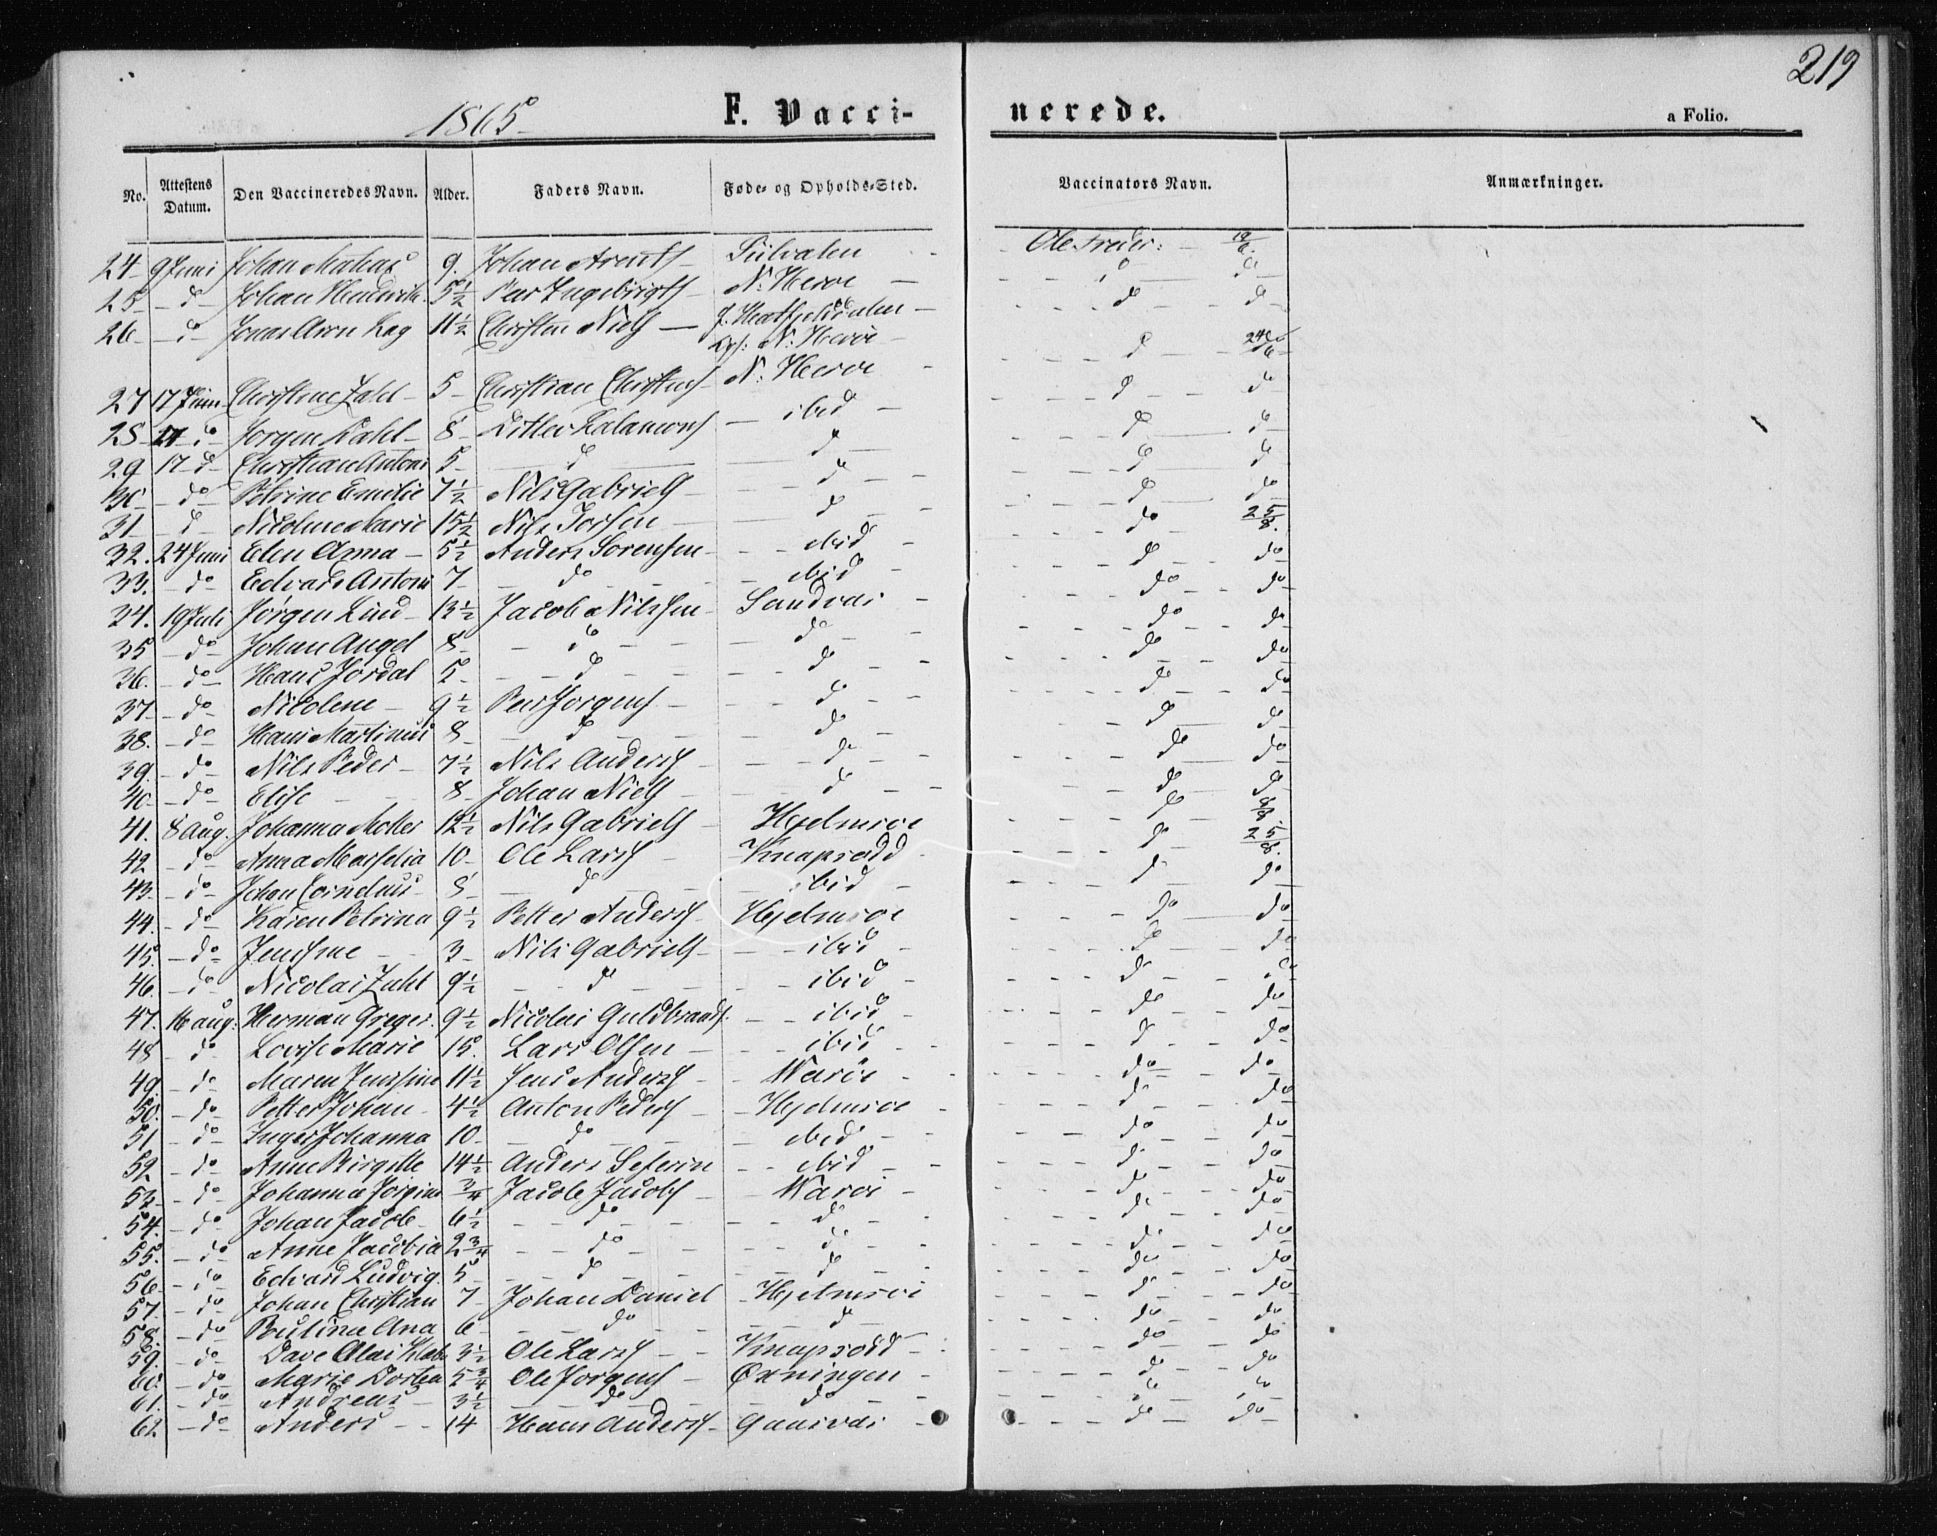 219
1865
F. Vacci-
nerede.
a Folio.
No. Attestens Datum. Den Vaccineredes Navn. Alder. Faders Navn. Føde- og Opholds-Sted. Vaccinators Navn. Anmærkninger.
24 9 Juni Johan 9. Johan Arentz Ole
25 do Johan Hendrik 5½ Peer Ingebrigts N: Herøe do do
26 do Jonas Aron Zeg 11½ Christen Niels do do
N: Herøe
27 17 Juni Christine Zahl 5 Christian Christens N: Herøe do 24/6
28 17 do Jørgen Dahl 8 Ditlev ibid do do
29 17 do Christian Antoni 5 do do do do
30 do Petrine Emilie 7½ Nils Gabriels do do do
31 do Nicoline Marie 15½ Nils do do do
32. 24 Juni Elen Anna 5½ Anders Sørensen ibid do 25/8.
33. do Edvard Anton 7 do ibid do do
34. 19 Juli Jørgen Lind 13½ Jacob Nilssen Sandvær do do
35 do Johan Angel 8 do do do do
36. do Hans Jørdal 5 do do do do
37 do Nicoline 9½ Peer Jørgens do do do
38. do Hans Martinus 8 do do do do
39. do Nils Peder 7½ Nils Anders do do do
40 do Elise 8 Johan Niels do do do
41. 8 Aug. Johanna 12½ Nils Gabriels Hjelmsøe do
42 do Anna Marselia 10 Ole Lars do 25/8.
43. do Johan Cornelius 8 do ibid do do
44. do Karen Petrina 9½ Petter Anders Hjelmsøe do do
45. do Jensine 3 Nils Gabriels ibid do do
46. do Nicolai Zahl 9½ do ibid do do
47. 16 aug: Herman Greger. 9½ Nicolai Guldbrands. ibid do do
48 do Lovise Marie 15. Lars Olsen ibid do do
49. do Maren Jenssine 11½ Jens Anders do do
50. do Petter Johan 4½ Anton Peders Hjelmsøe do do
51. do Inger Johanna 10 do ibid do do
52 do Anne Birgitte 14½ Anders Seferin ibid do do
53. do Johanna 3/4 Jacob Jacobs do do
54. do Johan Jacob 6½ do do do do
55. do Anne Jacobia 2¾ do do do do
56. do Edvard Ludvig. 5 do do do do
57 do Johan Christian 7 Johan Daniel Hjelmsøe do do
58. do Paulina Ana 6 do do do do
59. do 3½ Ole Lars do do
60. do Marie Dortea 5¾ Ole Jørgens Øxningen do do
61. do Andreas 3½ do do do do
62 do Anders 14 Hans Anders Gaasvær do do